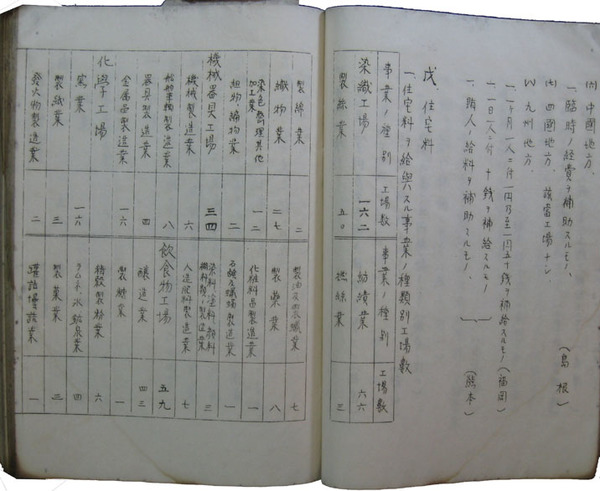 (六) 中国地方、
一、臨時ノ経費ヲ補助スルモノ、(島根)
(七) 四国地方、該當工場ナシ、
(八) 九州地方
一、一ヶ月一人ニ付一円乃至一円五十銭ヲ補給スルモノ(福岡)
一、一日一人ニ付十銭ヲ補給スルモノ
一、賄人ノ給料ヲ補助スルモノ、(熊本)
戊、住宅料
一、住宅料ヲ給與スル事業ノ種類別工場数
事業ノ種別 工場数 事業ノ種別 工場数
染織工場 一六二 紡績業 六六
製絲業 五〇 撚絲業 三
製綿業 二 製油及製蝋業 七
織物業 二七 製薬業 八
染色整理其他加工業 一二 化粧料品製造業 一
組物編物業 二 石鹸及蝋燭製造業 一
機械器具工場 三四 染料塗料顔料糊料類ノ製造業 三
機械製造業 六 人造肥料製造業 七
船舶車輛製造業 八 飲食物工場 五九
器具製造業 四 醸造業 四三
金属品製造業 一六 製糖業 一
化学工場 精穀製粉業 六
窯業 一六 ラムネ氷鉱泉業 四
製紙業 三 製菓業 三
發火物製造業 二 罐詰壜詰業 一